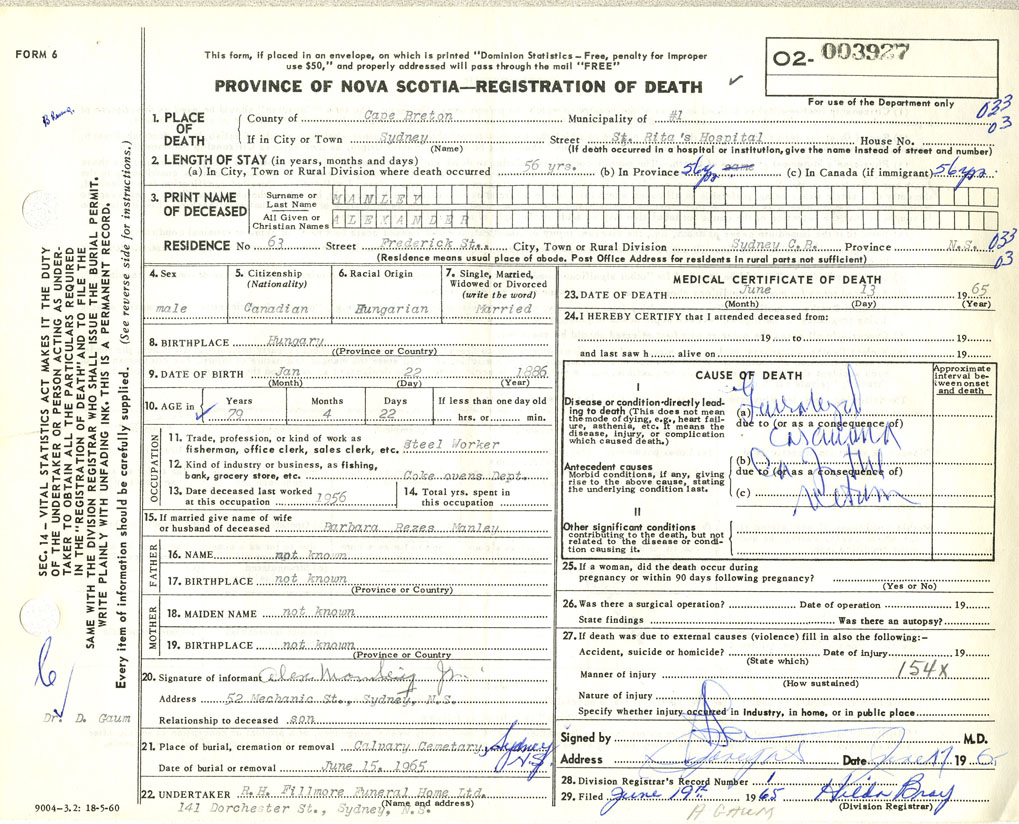 FORM 6
This form, if placed in an envelope, on which is printed "Dominion Statistics – Free, penalty for improper
use $50," and properly addressed will pass through the mail "FREE"
PROVINCE OF NOVA SCOTIA—REGISTRATION OF DEATH
O2- 003927
For use of the Department only
033
03
1. PLACE OF DEATH
County of Cape Breton Municipality of #1
If in City or Town Sydney Street St. Rita's Hospital House No.
(Name) (If death occurred in a hospital or institution, give the name instead of street and number)
2. LENGTH OF STAY (in years, months and days)
(a) In City, Town or Rural Division where death occurred 56 yrs. (b) In Province 56 yrs same (c) In Canada (if immigrant) 56 yrs.
3. PRINT NAME OF DECEASED
Surname or Last Name MANLEY
All Given or Christian Names ALEXANDER
RESIDENCE No 63 Street Frederick St., City, Town or Rural Division Sydney C.B. Province N.S.
033
03
(Residence means usual place of abode. Post Office Address for residents in rural parts not sufficient)
4. Sex
male
5. Citizenship
(Nationality)
Canadian
6. Racial Origin
Hungarian
7. Single, Married,
Widowed or Divorced
(write the word)
Married
8. BIRTHPLACE Hungary
((Province or Country)
9. DATE OF BIRTH Jan 22 1886
(Month) (Day) (Year)
10. AGE in Years Months Days If less than one day old
79 4 22 hrs. or min.
OCCUPATION
11. Trade, profession, or kind of work as
fisherman, office clerk, sales clerk, etc. Steel Worker
12. Kind of industry or business, as fishing,
bank, grocery store, etc. Coke ovens Dept.
13. Date deceased last worked
at this occupation 1956
14. Total yrs. spent in
this occupation
15. If married give name of wife
or husband of deceased Barbara Rezes Manley
FATHER
16. NAME not known
17. BIRTHPLACE not known
(Province or Country)
MOTHER
18. MAIDEN NAME not known
19. BIRTHPLACE not known
(Province or Country
20. Signature of informant Alex Jr.
Address 52 Mechanic St., Sydney, N.S.
Relationship to deceased son
21. Place of burial, cremation or removal Calvary Cemetary, Sydney N.S.
Date of burial or removal June 15, 1965
22. UNDERTAKER R.H. Fillmore Funeral Home Ltd.
(Name and address)
141 Dorchester St., Sydney, N.S.
MEDICAL CERTIFICATE OF DEATH
23. DATE OF DEATH June 13 1965
(Month) (Day) (Year)
24. I HEREBY CERTIFY that I attended deceased from:
19 to 19
and last saw h alive on 19
CAUSE OF DEATH
Approximate
interval be-
tween onset
and death
I
Disease or condition directly lead-
ing to death (This does not mean
the mode of dying, e.g., heart fail-
ure, asthenia, etc. It means the
disease, injury, or complication
which caused death.)
(a)
due to (or as a consequence of)
Antecedent causes
Morbid conditions, if any, giving
rise to the above cause, stating
the underlying condition last.
(b)
due to (or as a consequence of)
(c)
II
Other significant conditions
contributing to the death, but not
related to the disease or condi-
tion causing it.
25. If a woman, did the death occur during
pregnancy or within 90 days following pregnancy?
(Yes or No)
26. Was there a surgical operation? Date of operation 19
State findings Was there an autopsy?
27. If death was due to external causes (violence) fill in also the following:–
Accident, suicide or homicide? Date of injury 19
(State which)
Manner of injury 154X
(How sustained)
Nature of injury
Specify whether injury occurred in Industry, in home, or in public place
Signed by M.D.
Address Date June 17 196
28. Division Registrar's Record Number 1
29. Filed June 19th 1965 Hilda Bray
(Division Registrar)
A GAUM
SEC. 14 – VITAL STATISTICS ACT MAKES IT THE DUTY
OF THE UNDERTAKER OR PERSON ACTING AS UNDER-
TAKER TO OBTAIN ALL THE PARTICULARS REQUIRED
IN THE "REGISTRATION OF DEATH" AND TO FILE THE
SAME WITH THE DIVISION REGISTRAR WHO SHALL ISSUE THE BURIAL PERMIT.
WRITE PLAINLY WITH UNFADING INK. THIS IS A PERMANENT RECORD.
Every item of information should be carefully supplied. (See reverse side for instructions.)
Dr. D. Gaum
9004-3.2: 18-5-60